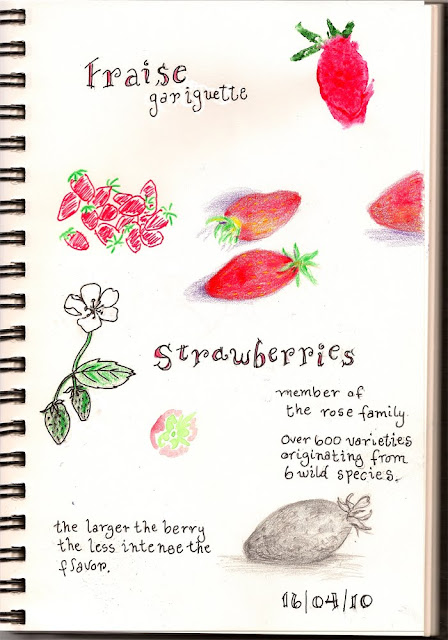 fraise
gariguette
Strawberries
member of
the rose family.
Over 600 varieties
originating from
6 wild species.
the larger the berry
the less intense the
flavor.
16/04/10